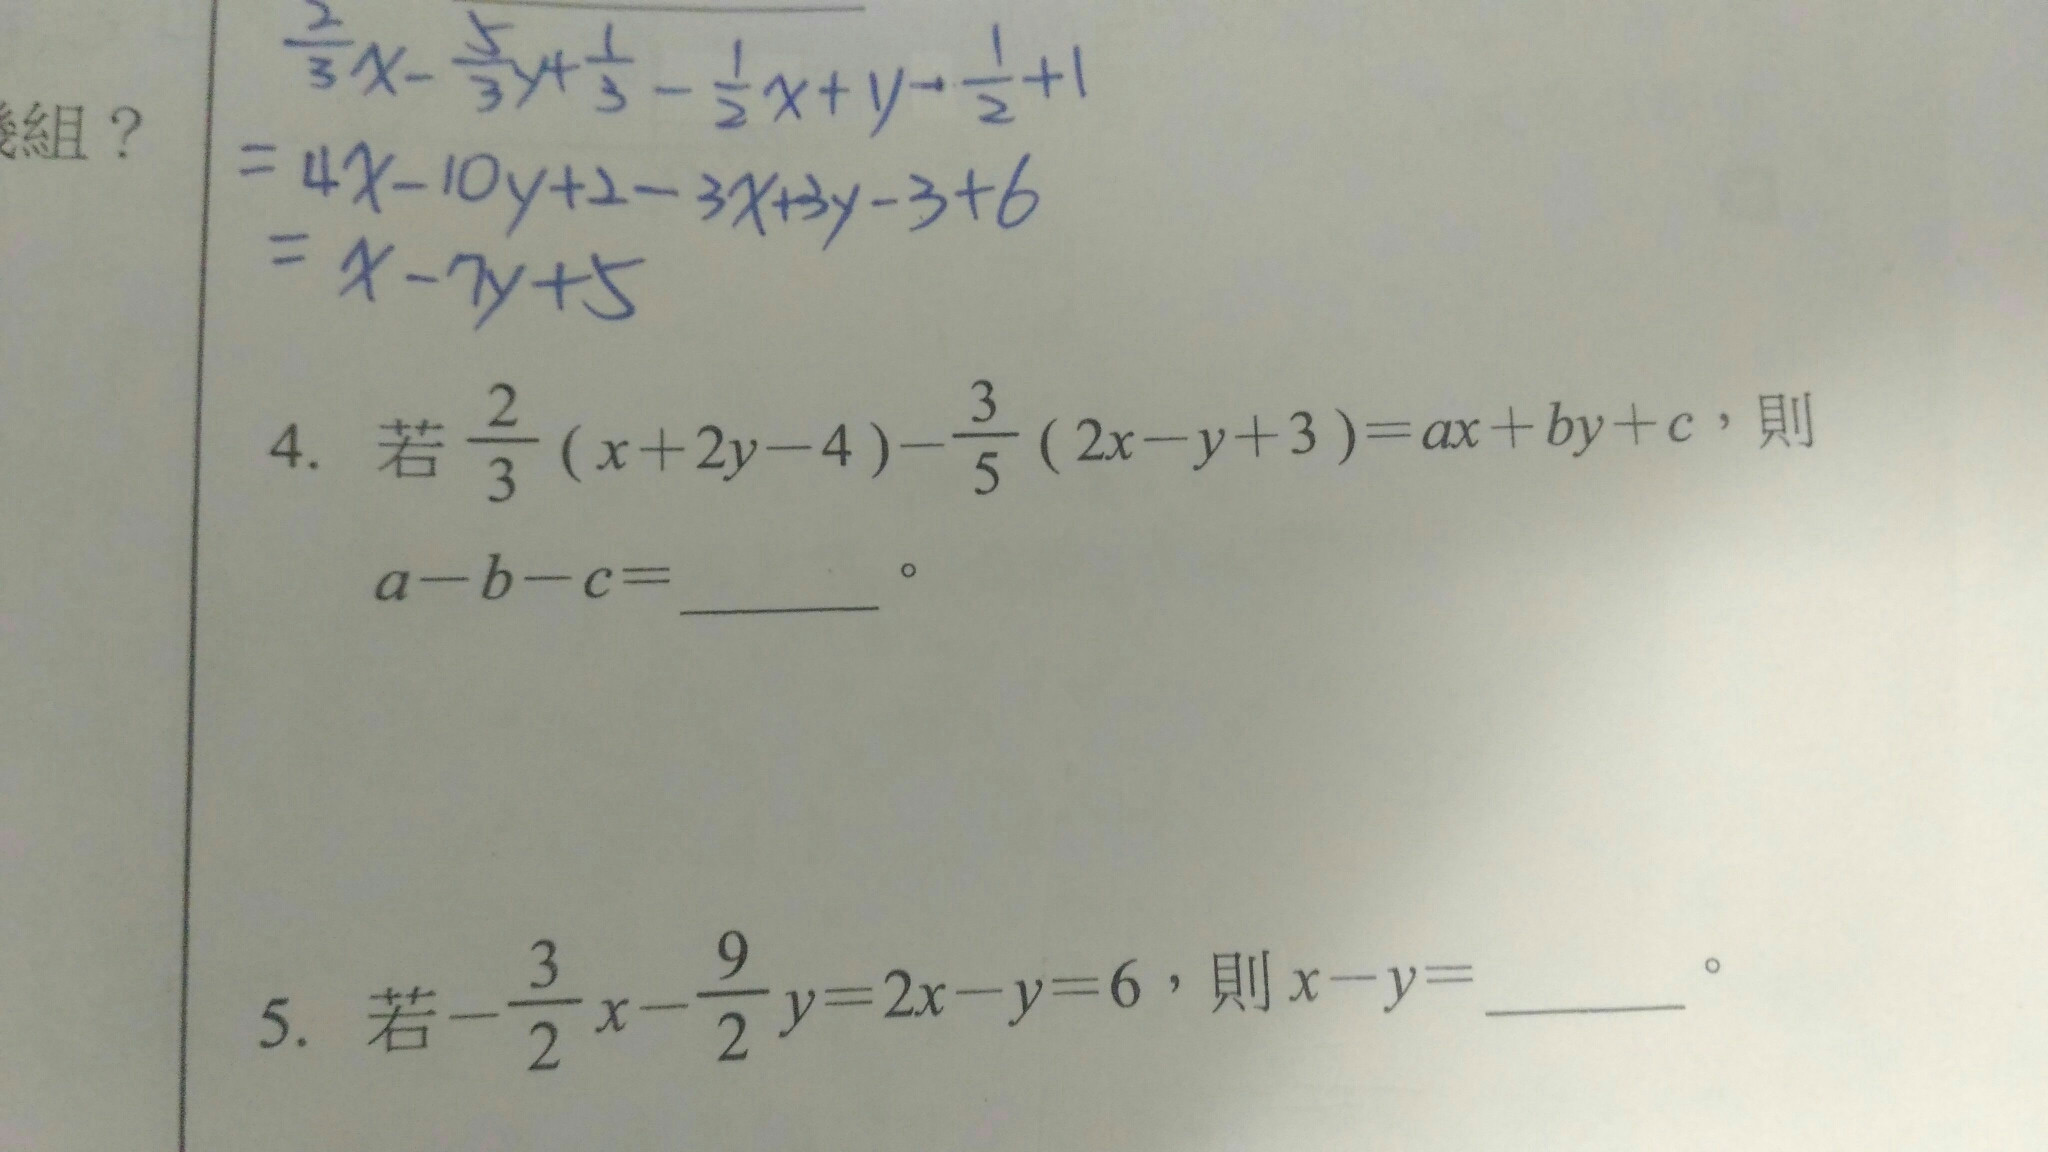 2/3 x - 5/3 y + 1/3 - 1/2 x + y - 1/2 + 1
= 4x - 10y + 2 - 3x + 3y - 3 + 6
= x - 7y + 5
組？
4. 若 2/3 ( x + 2y - 4 ) - 3/5 ( 2x - y + 3 ) = ax + by + c，則
a - b - c = ______。
5. 若 - 3/2 x - 9/2 y = 2x - y = 6，則 x - y = ______。